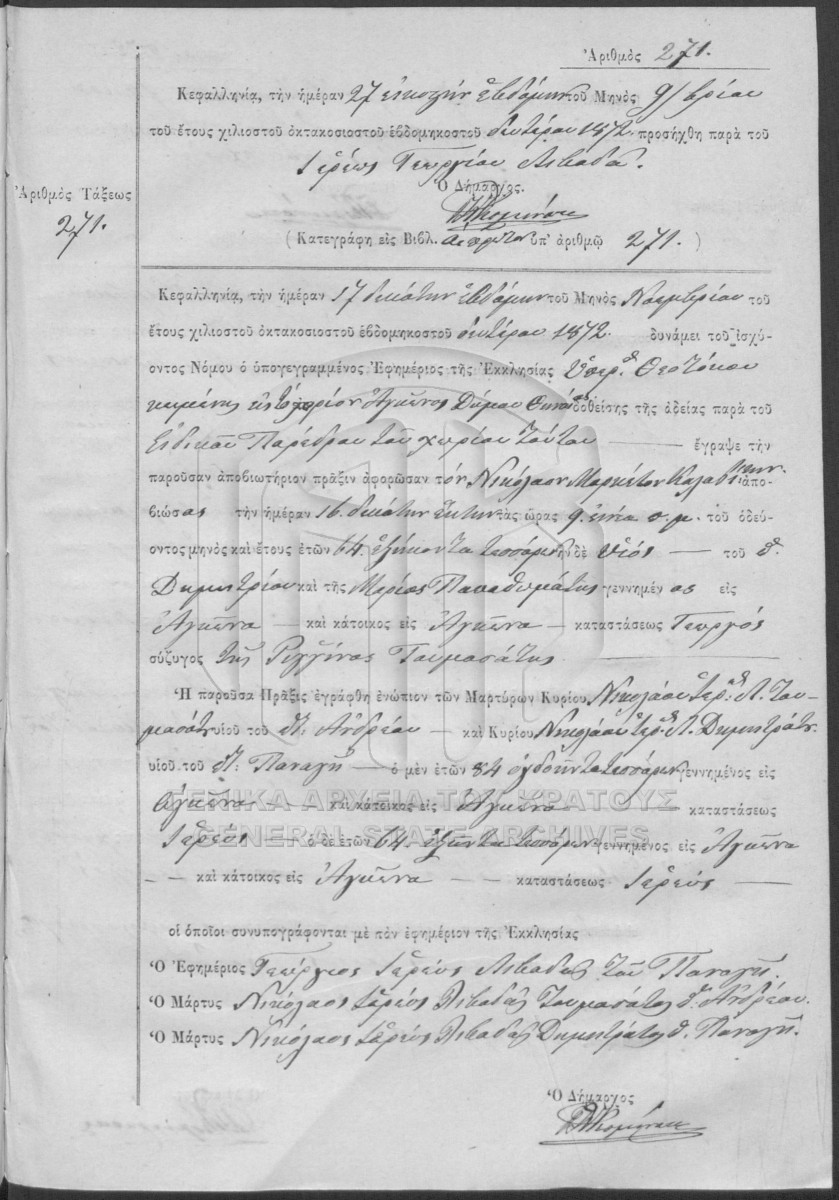 Ἀριθμὸς 271.
Κεφαλληνίᾳ, τὴν ἡμέραν 27 εἰκοστὴν ἑβδόμην τοῦ Μηνὸς 9/βρίου
τοῦ ἔτους χιλιοστοῦ ὀκτακοσιοστοῦ ἑβδομηκοστοῦ δευτέρου 1872. προσήχθη παρὰ τοῦ
Ἱερέως Γεωργίου Λιβαδᾶ.
Ὁ Δήμαρχος.
(Κατεγράφη εἰς Βιβλ. ὑπ' ἀριθμῷ 271.)
Ἀριθμὸς Τάξεως
271.
Κεφαλληνίᾳ, τὴν ἡμέραν 17 δεκάτην ἑβδόμην τοῦ Μηνὸς Νοεμβρίου τοῦ
ἔτους χιλιοστοῦ ὀκτακοσιοστοῦ ἑβδομηκοστοῦ δευτέρου 1872. δυνάμει τοῦ ἰσχύ-
οντος Νόμου ὁ ὑπογεγραμμένος Ἐφημέριος τῆς Ἐκκλησίας Ὑπερ. Θεοτόκου
κειμένης εἰς τὸ χωρίον Ἀγκῶνος Δήμου δοθείσης τῆς ἀδείας παρὰ τοῦ
Εἰδικοῦ Παρέδρου τοῦ χωρίου τούτου — ἔγραψε τὴν
παροῦσαν ἀποβιωτήριον πρᾶξιν ἀφορῶσαν τόν, Νικόλαον Μαρκέτον ἀπο-
βιώσας τὴν ἡμέραν 16. δεκάτην ἕκτην τὰς ὥρας 9. ἐννέα π.μ. τοῦ ὁδεύ-
οντος μηνὸς καὶ ἔτους ἐτῶν 64. ἑξήκοντα τεσσάρων ἦν δὲ υἱός — τοῦ π.
Δημητρίου καὶ τῆς Μαρίας Παπαθωμάτης γεννημένος εἰς
Ἀγκῶνα — καὶ κάτοικος εἰς Ἀγκῶνα — καταστάσεως Γεωργός
σύζυγος τῆς Ρεγγίνας Τουμασάτης
Ἡ παροῦσα Πρᾶξις ἐγράφθη ἐνώπιον τῶν Μαρτύρων Κυρίου, Νικολάου ἱερ: Λ. Του-
μασάτου υἱοῦ τοῦ π: Ἀνδρέου — καὶ Κυρίου Νικολάου ἱερ. Λ. Δημητράτου
υἱοῦ τοῦ π: Παναγῆ — ὁ μὲν ἐτῶν 84 ὀγδοήντα τεσσάρων γεννημένος εἰς
Ἀγκῶνα — καὶ κάτοικος εἰς Ἀγκῶνα — καταστάσεως
Ἱερεύς — ὁ δὲ ἐτῶν 64. ἑξήντα τεσσάρων γεννημένος εἰς Ἀγκῶνα
— καὶ κάτοικος εἰς Ἀγκῶνα — καταστάσεως Ἱερεύς —
ΓΕΝΙΚΑ ΑΡΧΕΙΑ ΤΟΥ ΚΡΑΤΟΥΣ
GENERAL STATE ARCHIVES
οἱ ὁποῖοι συνυπογράφονται μὲ τὸν ἐφημέριον τῆς Ἐκκλησίας
Ὁ Ἐφημέριος Γεώργιος Ἱερεύς Λιβαδᾶς τοῦ Παναγῆ.
Ὁ Μάρτυς Νικόλαος ἱερεύς Λιβαδᾶς Τουμασάτος π. Ἀνδρέου.
Ὁ Μάρτυς Νικόλαος ἱερεύς Λιβαδᾶς Δημητράτος π. Παναγῆ.
Ὁ Δήμαρχος